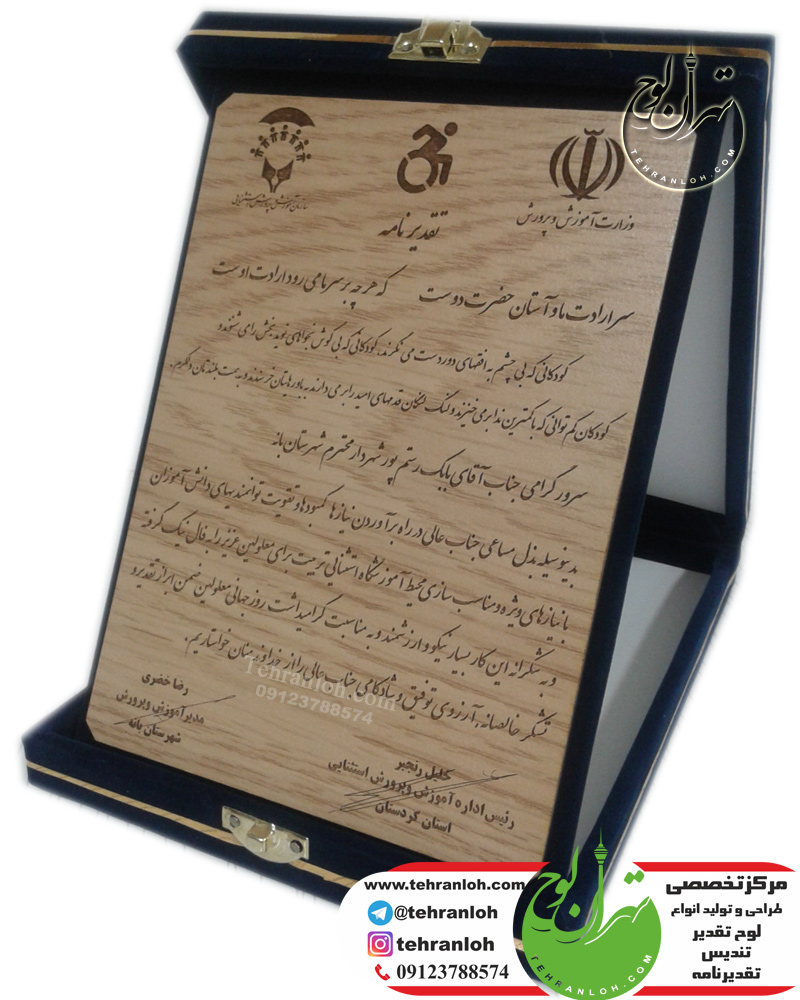 تهران لوح
TEHRANLOH.COM
سازمان آموزش و پرورش استثنایی
وزارت آموزش و پرورش
تقدیرنامه
سر ارادت ما و آستان حضرت دوست که هر چه بر سر ما می رود ارادت اوست
کودکانی که بی چشم به افقهای دوردست می نگرند، کودکانی که بی گوش نجواهای نوید بخش را می شنوند و
کودکان کم توانی که با کمترین ندا برمی خیزند و لنگ لنگان قدمهای امید را برمی دارند به باورهایتان خرسندند و به همت بلندتان دلگرم.
سرور گرامی جناب آقای بابک رستم پور شهردار محترم شهرستان بانه
بدینوسیله بذل مساعی جناب عالی در راه برآوردن نیازها کمبودها و تقویت توانمندیهای دانش آموزان
با نیازهای ویژه و مناسب سازی محیط آموزشگاه استثنایی تربیت برای معلولین عزیز را به فال نیک گرفته
و به شکرانه این کار بسیار نیکو و ارزشمند و به مناسبت گرامیداشت روز جهانی معلولین ضمن ابراز تقدیر و
تشکر خالصانه، آرزوی توفیق و شادکامی جناب عالی را از خداوند منان خواستاریم.
Tehranloh.com
09123788574
رضا خضری
مدیر آموزش و پرورش
شهرستان بانه
خلیل رنجبر
رئیس اداره آموزش و پرورش استثنایی
استان کردستان
www.tehranloh.com
@tehranloh
tehranloh
09123788574
تهران لوح
TEHRANLOH.COM
مرکز تخصصی
طراحی و تولید انواع
لوح تقدیر
تندیس
تقدیرنامه